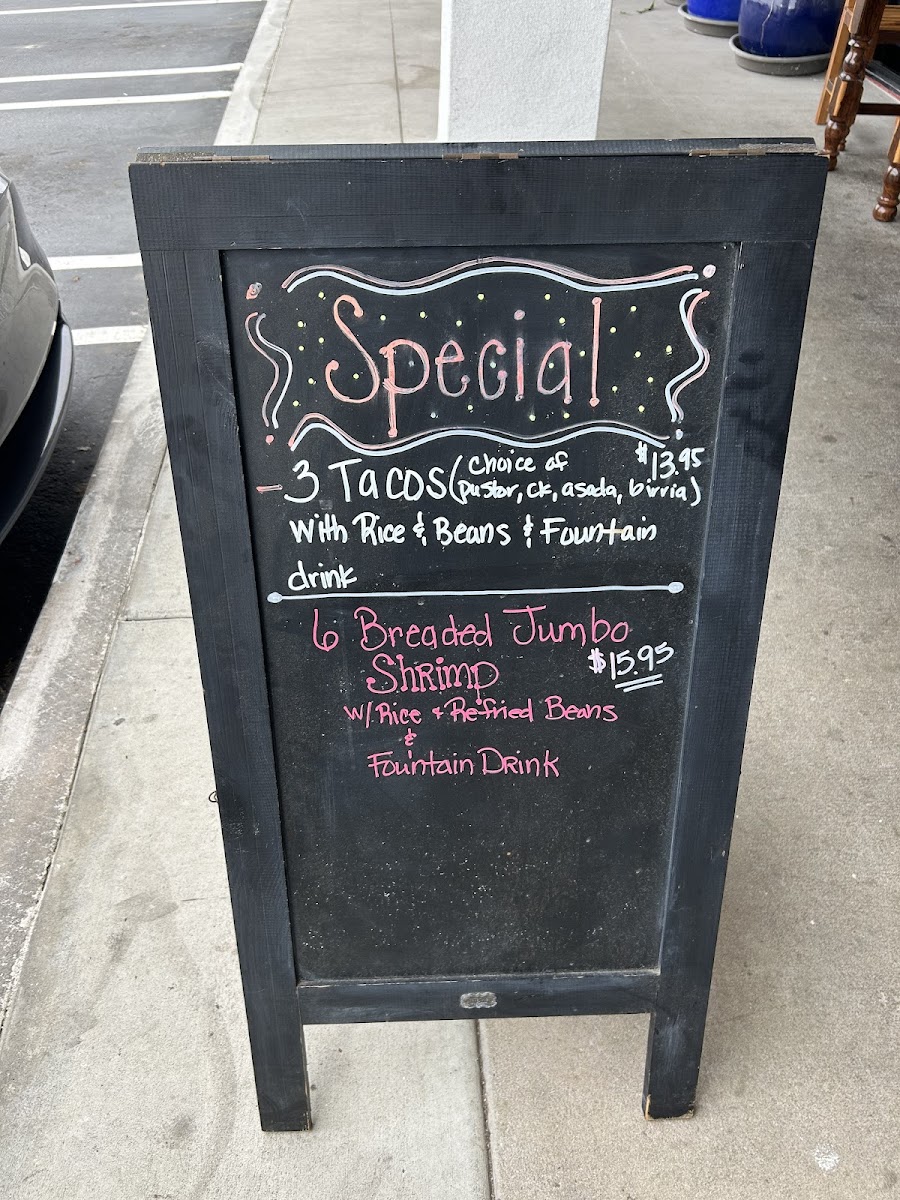 Special
- 3 Tacos (choice of $13.95
pustor, ck, asada, birria)
with Rice & Beans & Fountain
drink
6 Breaded Jumbo
Shrimp $15.95
w/ Rice + Refried Beans
&
Fountain Drink